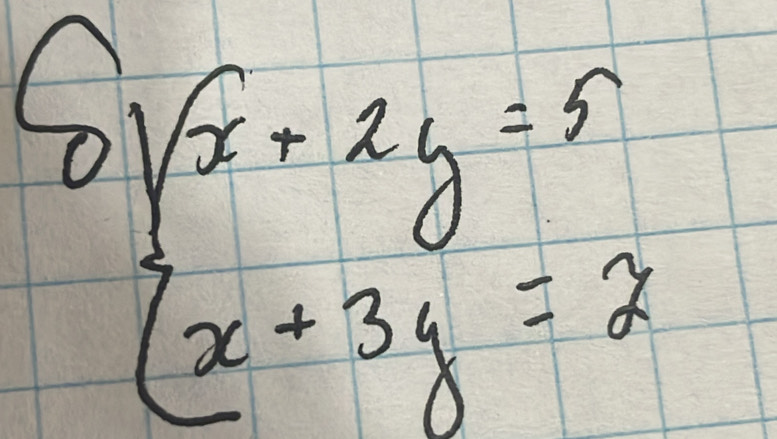 x + 2y = 5
x + 3y = 7